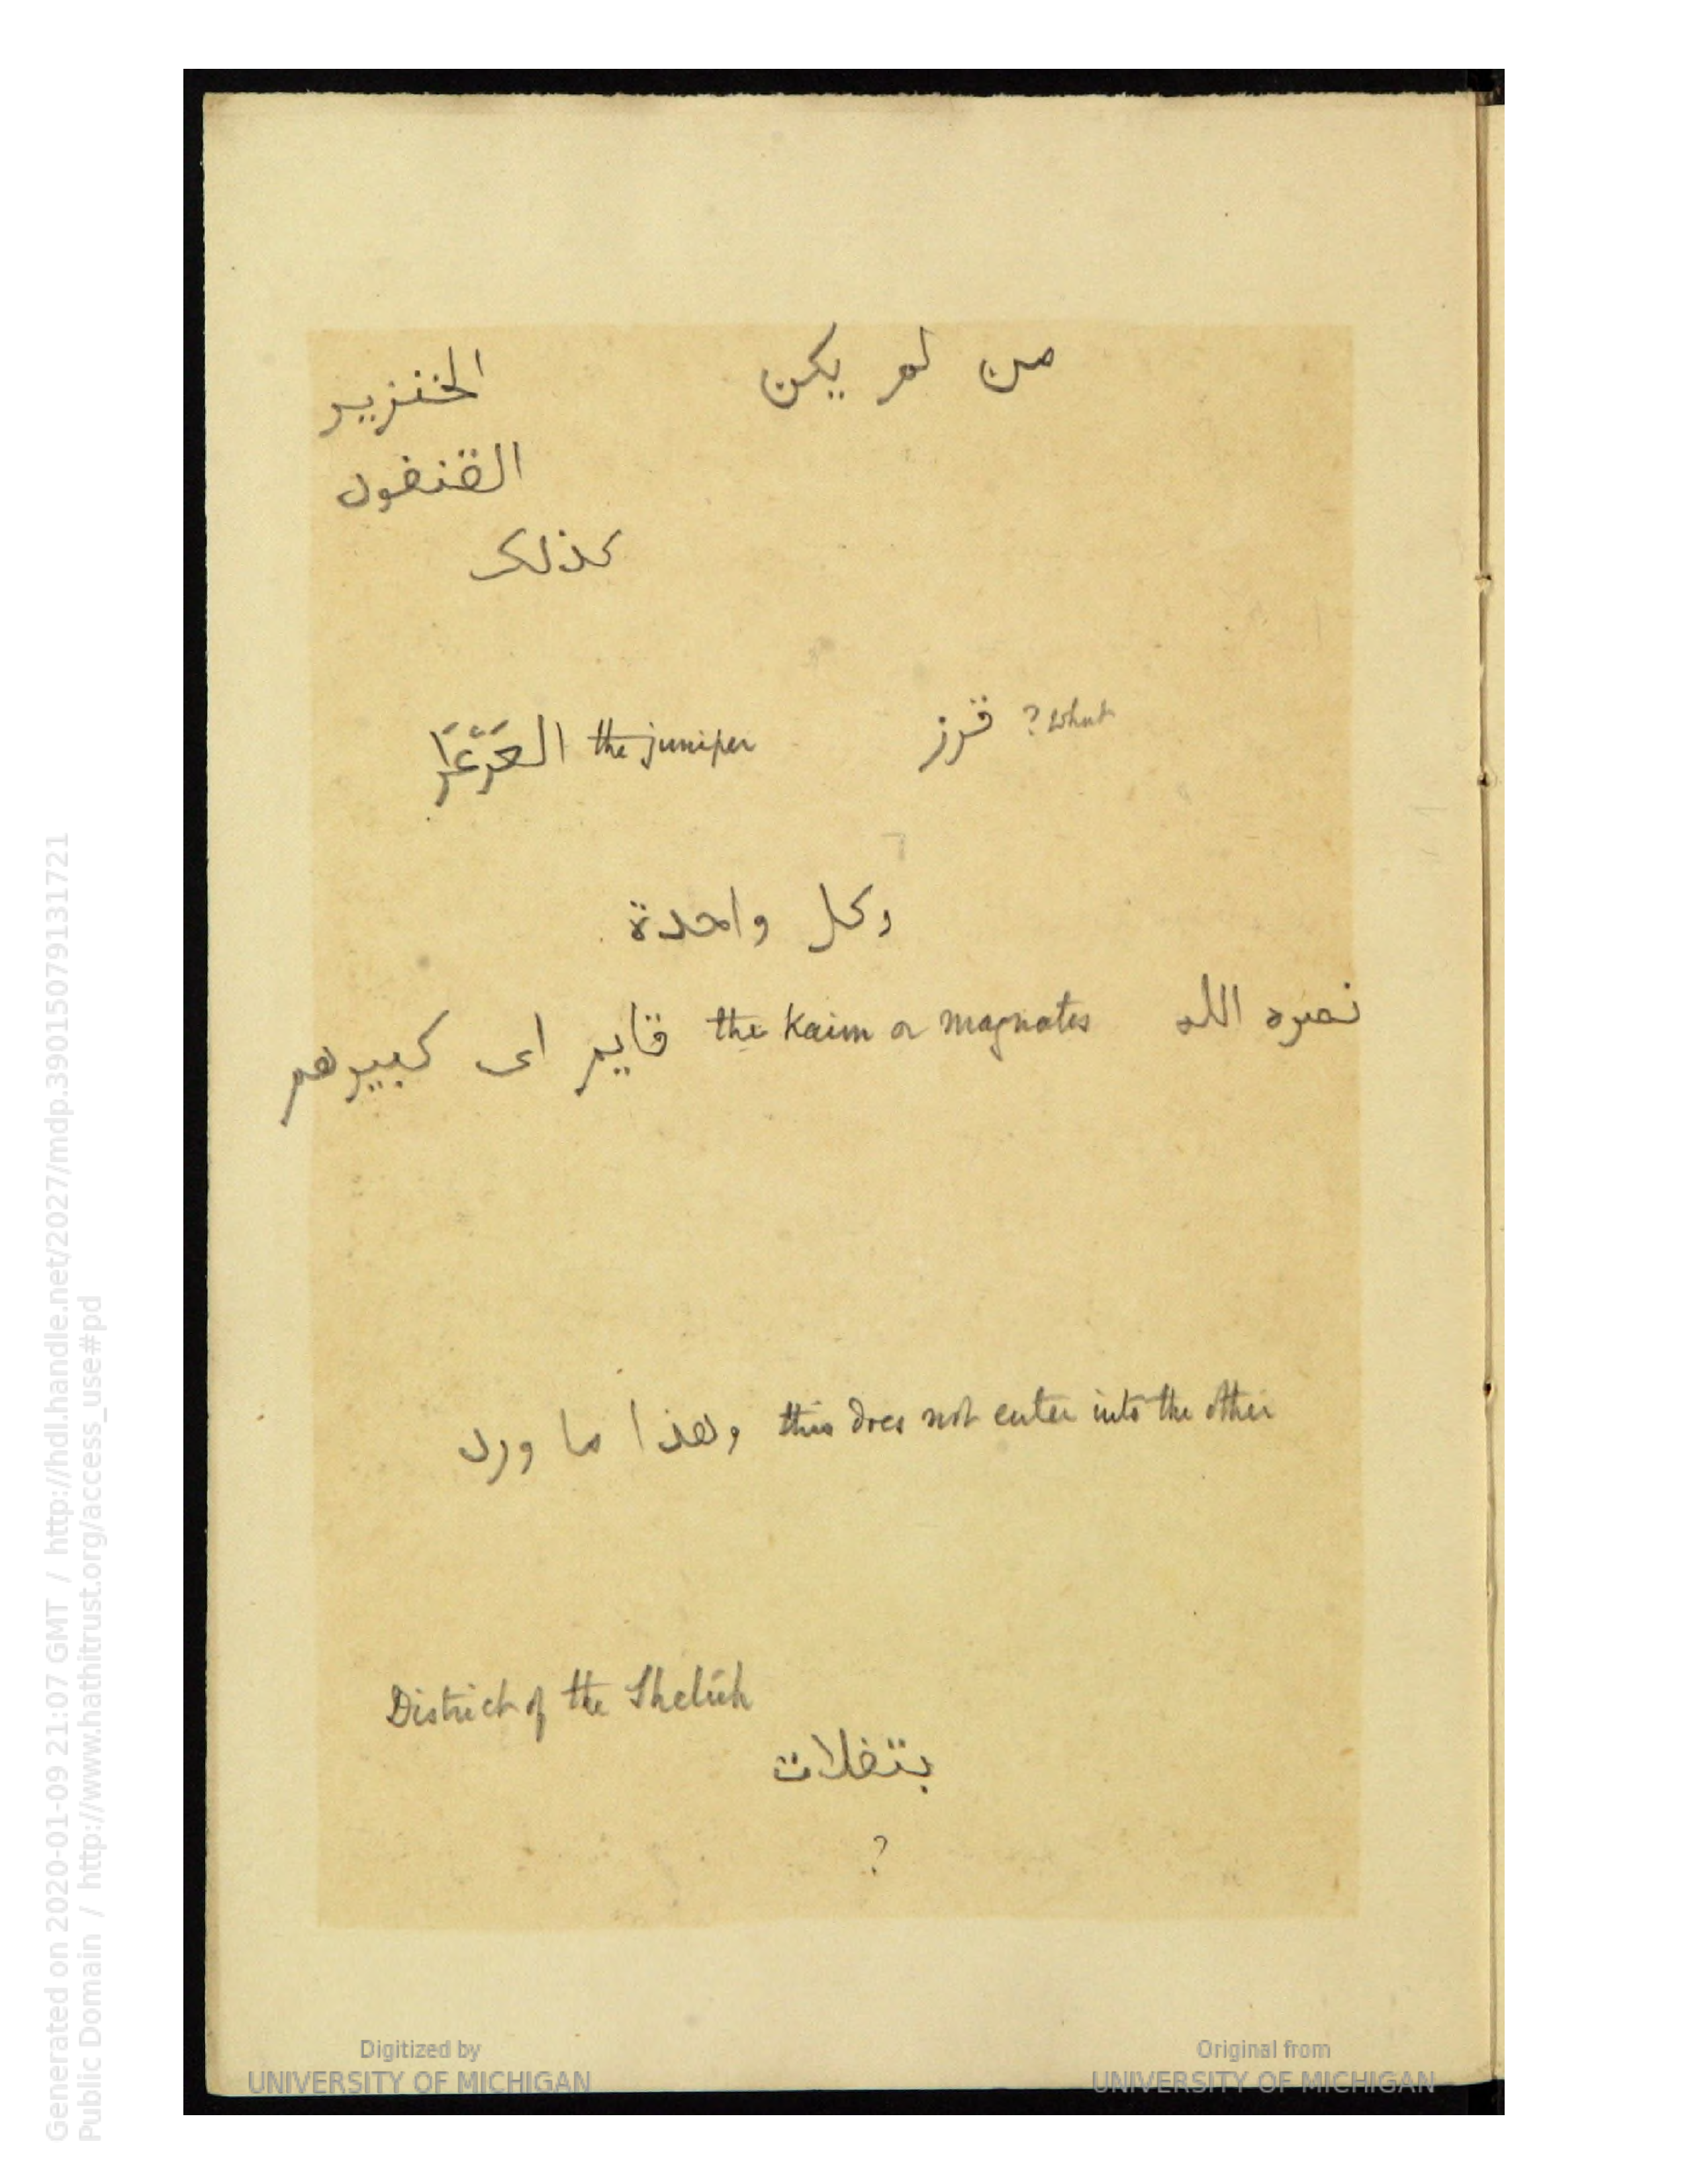 من لم يكن
الخنزير
القنفول
كذلك
قرز ? what
العَرْعَرَا the juniper
وكل واحدة
نصره الله
قايم اى كبيرهم the Kaim or magnates
وهذا ما ورد this does not enter into the other
District of the Shelúh
بتغلات
?
Digitized by
UNIVERSITY OF MICHIGAN
Original from
UNIVERSITY OF MICHIGAN
Generated on 2020-01-09 21:07 GMT / http://hdl.handle.net/2027/mdp.39015079131721
Public Domain / http://www.hathitrust.org/access_use#pd